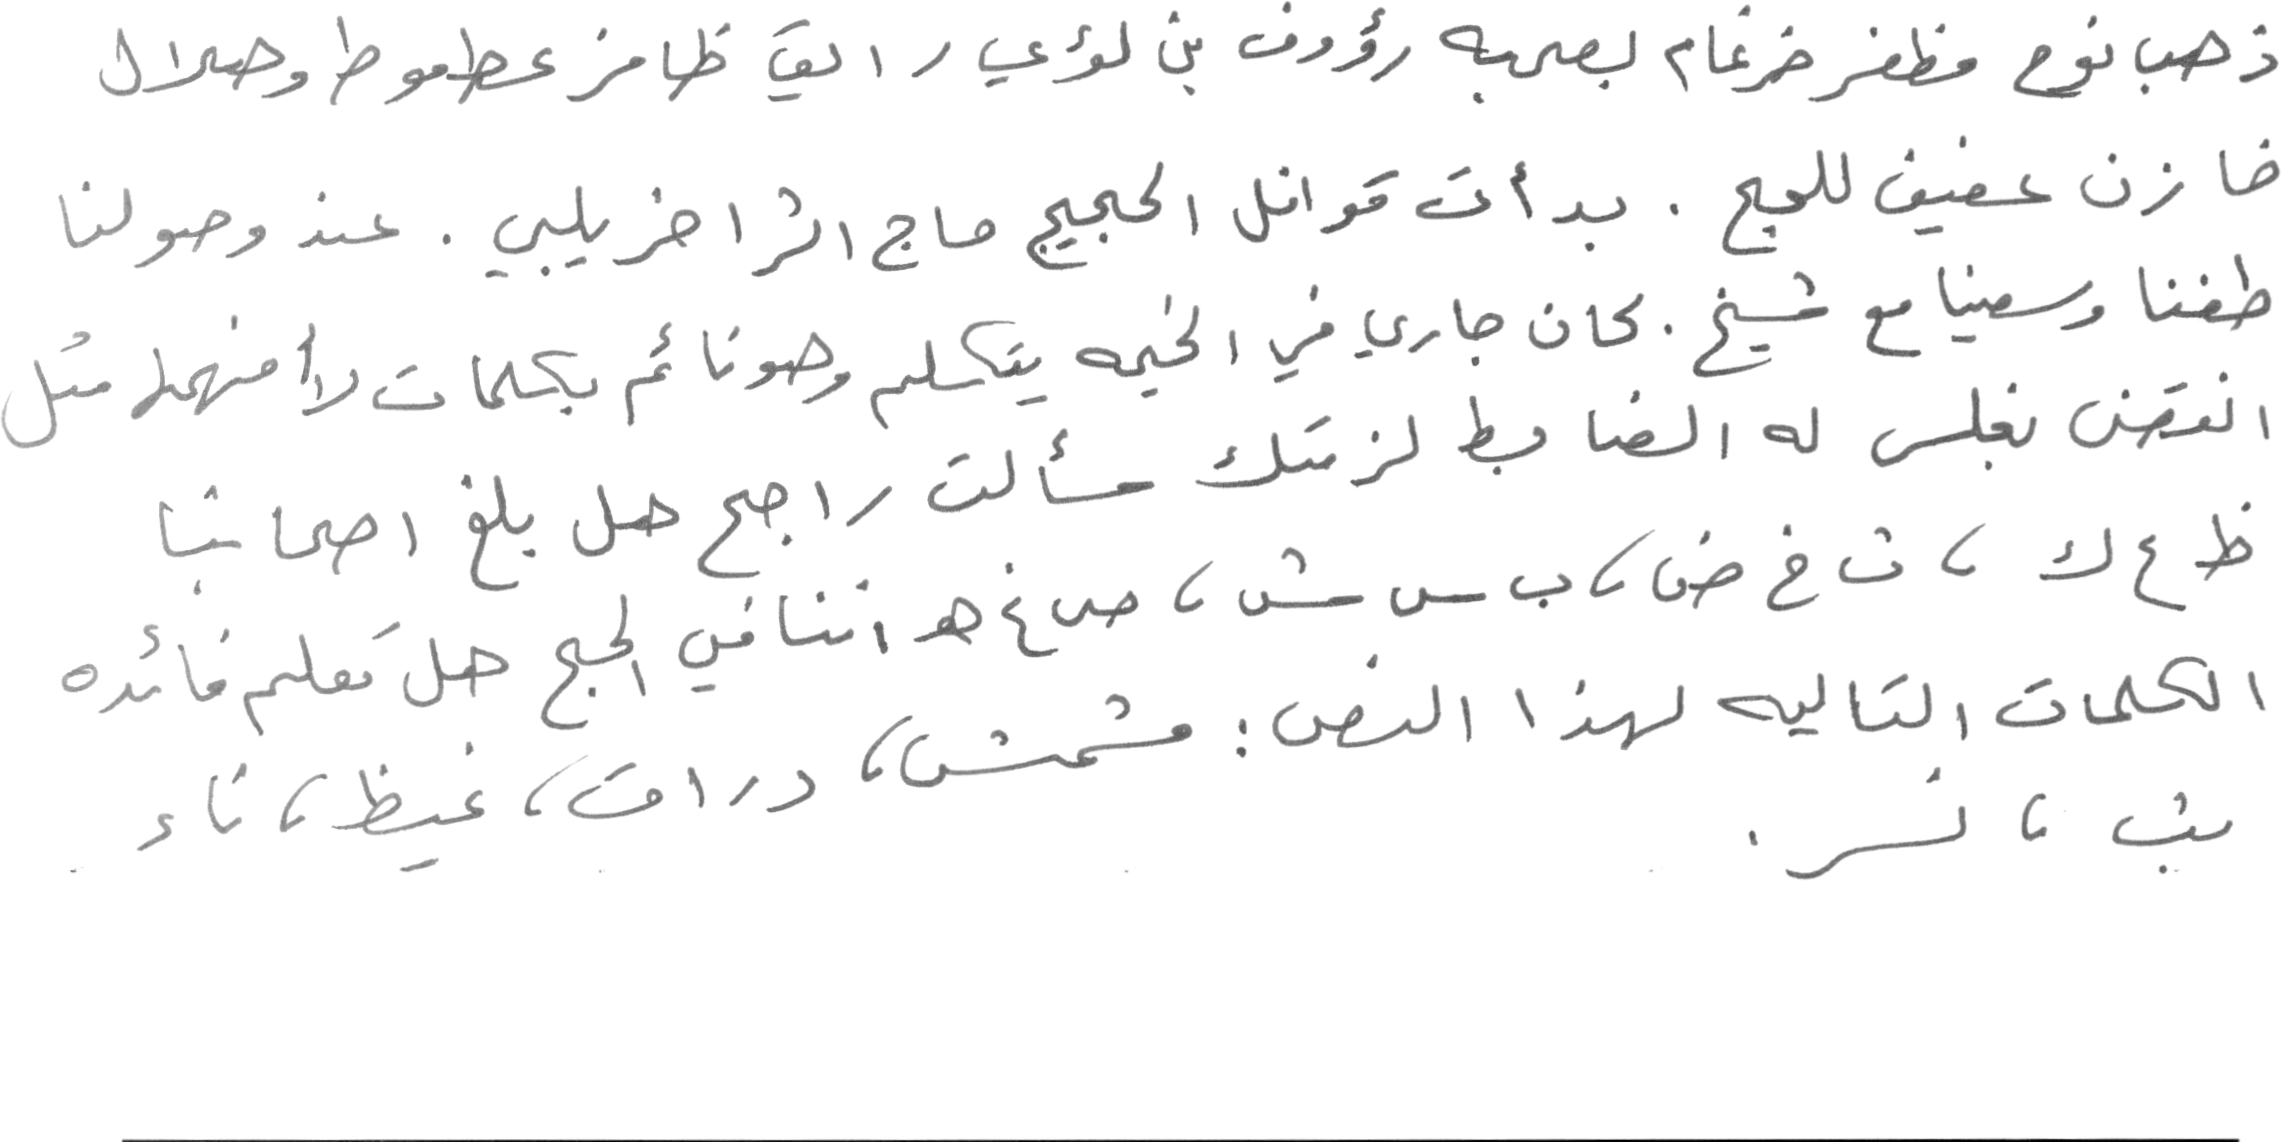 ذهب نوح مظفر ضرغام بصحبه رؤوف بن لؤي راتق ظافر عطموط وهلال
خازن عفيف للحج . بدأت قوافل الحجيج حاج اثر اخر يلبي . عند وصولنا
طفنا وسعينا مع شيخ . كان جاري في الخيمه يتكلم وهو نائم بكلمات لا أفهمها مثل
انقض بغلس له الضابط لزمتك سألت راجح هل بلغ اصحابنا
ظ ع ك ، ث خ ض ، ب س ش ، ص غ هـ اننا في الحج هل تعلم فائده
الكلمات التاليه لهذا النص : مشمش ، درات ، غيظ ، ثاء
بث ، نسر .